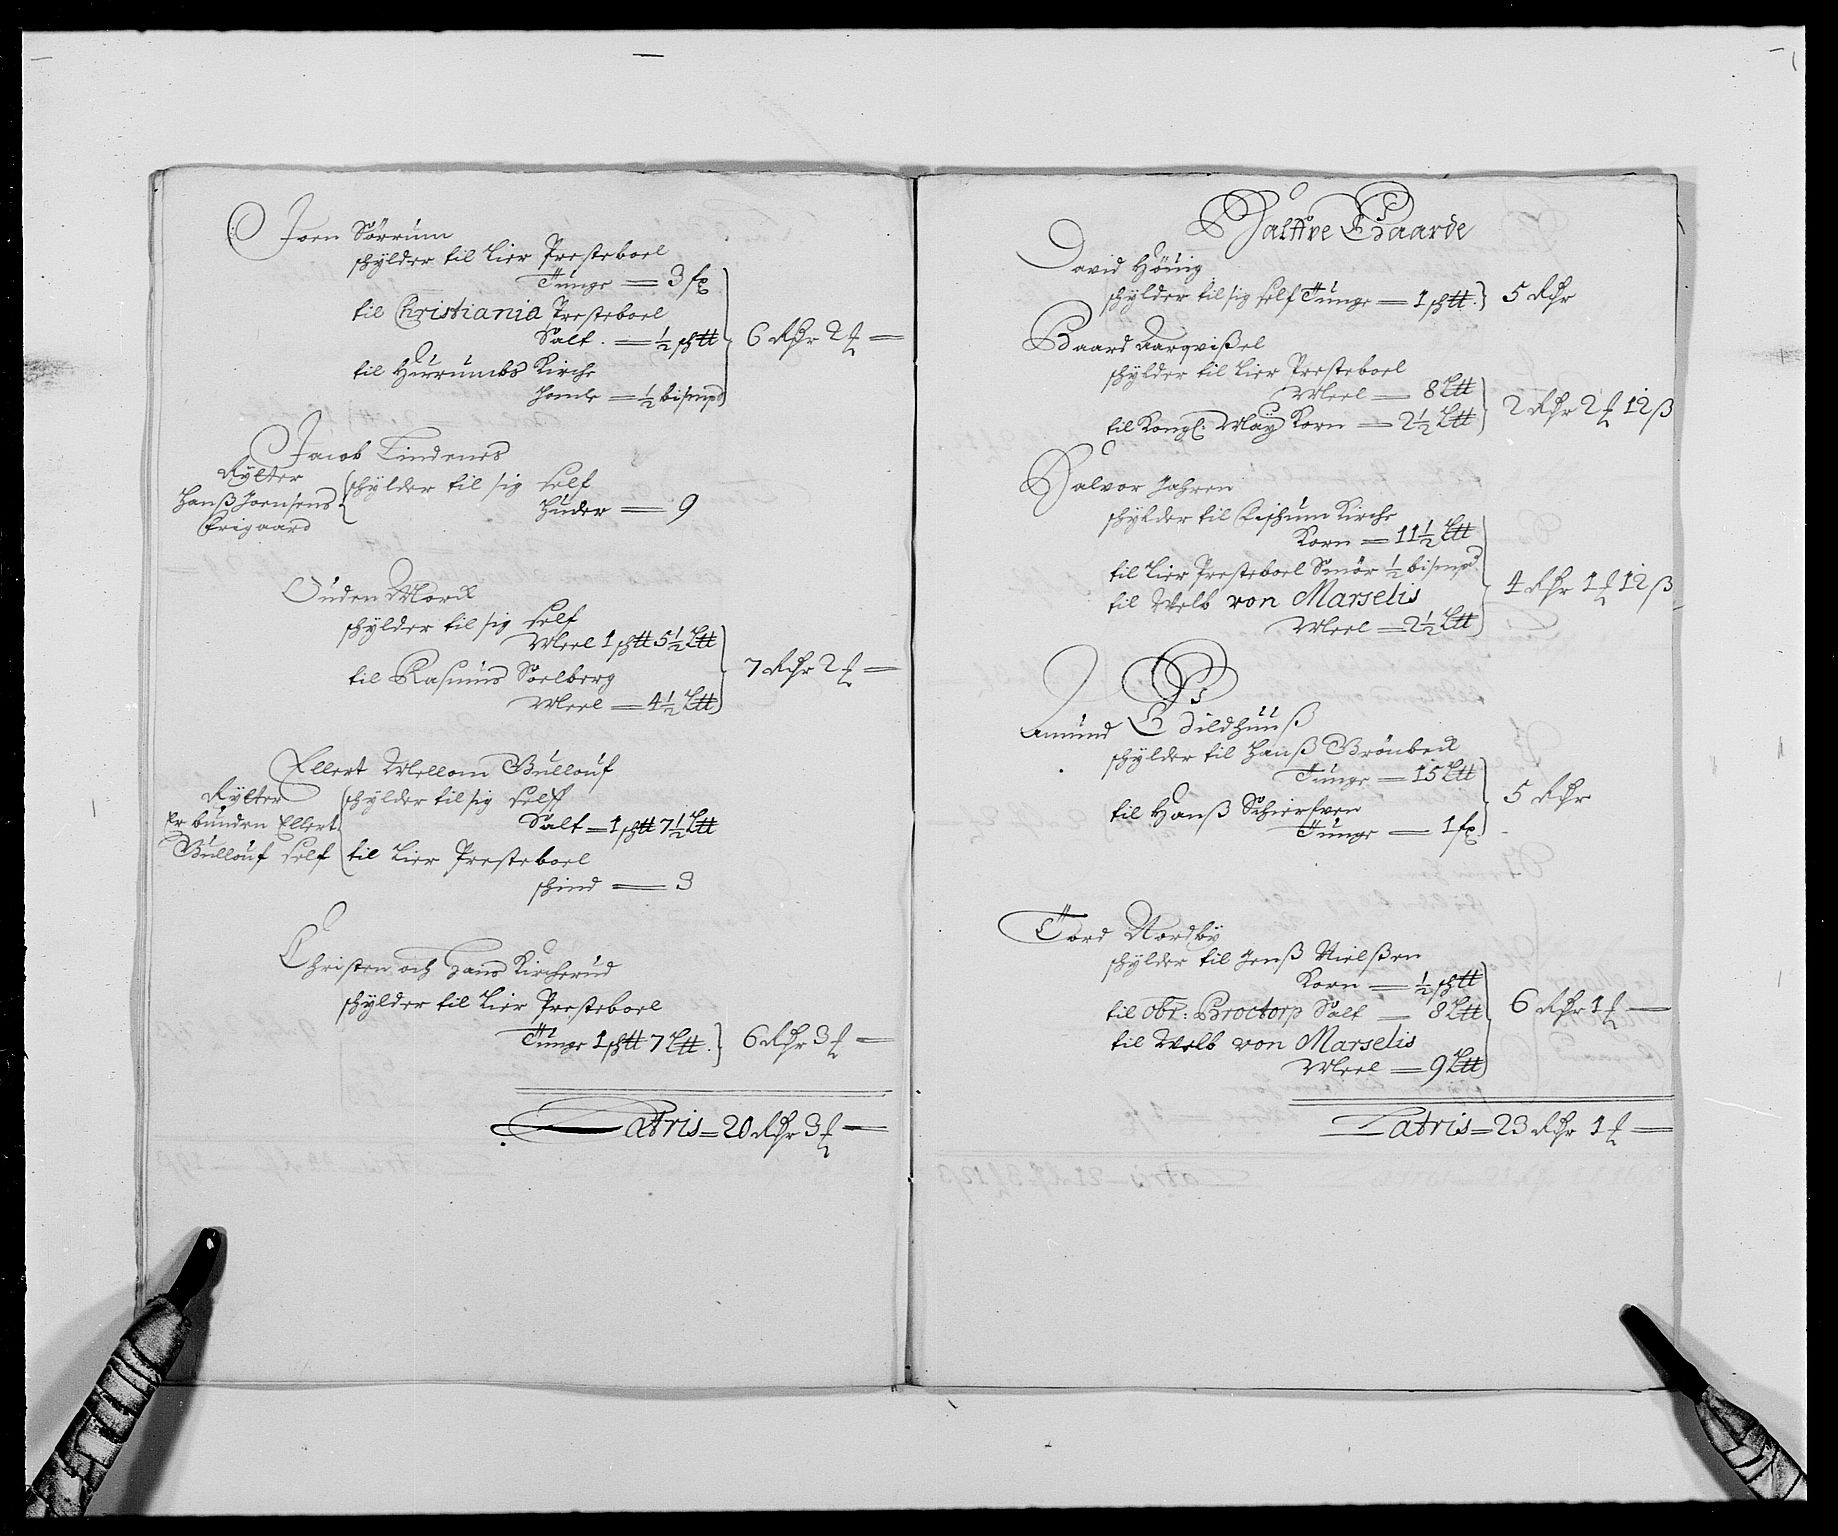 Joen Sørrum
schylder til Lier Presteboel
Tunge — 3 fx
til Christiania Presteboel
Salt. — ½ sch℔
til Hurrumbs Kirche
Homle — ½ bismpd
6 Rdr 2 f —
Jacob Lindenes
Rytter
Hanß Joensens
Frigaard
schylder til sig self
Huder — 9
Ouden Morck
schylder til sig self
Meel 1 sch℔ 5½ L℔
til Rasmus Soelberg
Meel — 4½ L℔
7 Rdr 2 f —
Ellert Mellom Bullouf
Rytter
Er bunden Ellert
Bullouf self
schylder til sig self
Salt — 1 sch℔ 7½ L℔
til Lier Presteboel
schind — 3
Christen och Hans Kircherud
schylder til Lier Presteboel
Tunge 1 sch℔ 7 L℔. 6 Rdr 3 f —
Latris — 20 Rdr 3 f —
Halffve Gaarde
David Hönig
schylder til sig self Tunge — 1 sch℔. 5 Rdr
Baard Aarqvißel
schylder til Lier Presteboel
Meel — 8 L℔
til Kongl. May Korn — 2½ L℔
2 Rdr 2 f 12 ß
Halvor Jahren
schylder til Kirche
Korn — 11½ L℔
til Lier Presteboel Smör ½ bismpd
til Welb von Marselis
Meel — 2½ L℔
4 Rdr 1 f 12 ß
Amund Gildhuuß
schylder til Hanß Brönbeck
Tunge — 15 L℔
til Hanß Schierfven
Tunge — 1 fx
5 Rdr
Tord Nordby
schylder til Jenß Nielßen
Korn — ½ sch℔
til Obr: Broctorp Salt — 8 L℔
til Welb von Marselis
Meel — 9 L℔
6 Rdr 1 f —
Latris — 23 Rdr 1 f —